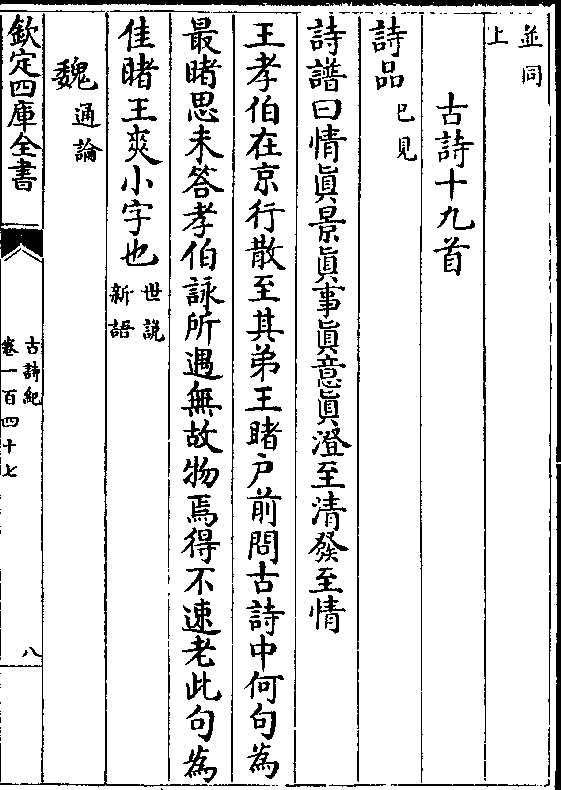 並同
上
古詩十九首
詩品已見
詩譜曰情眞景眞事眞意眞澄至清發至情
王孝伯在京行散至其弟王睹户前問古詩中何句為
最睹思未答孝伯詠所遇無故物焉得不速老此句為
佳睹王爽小字也世説
新語
魏通論
欽定四庫全書
古詩紀
卷一百四十七
八